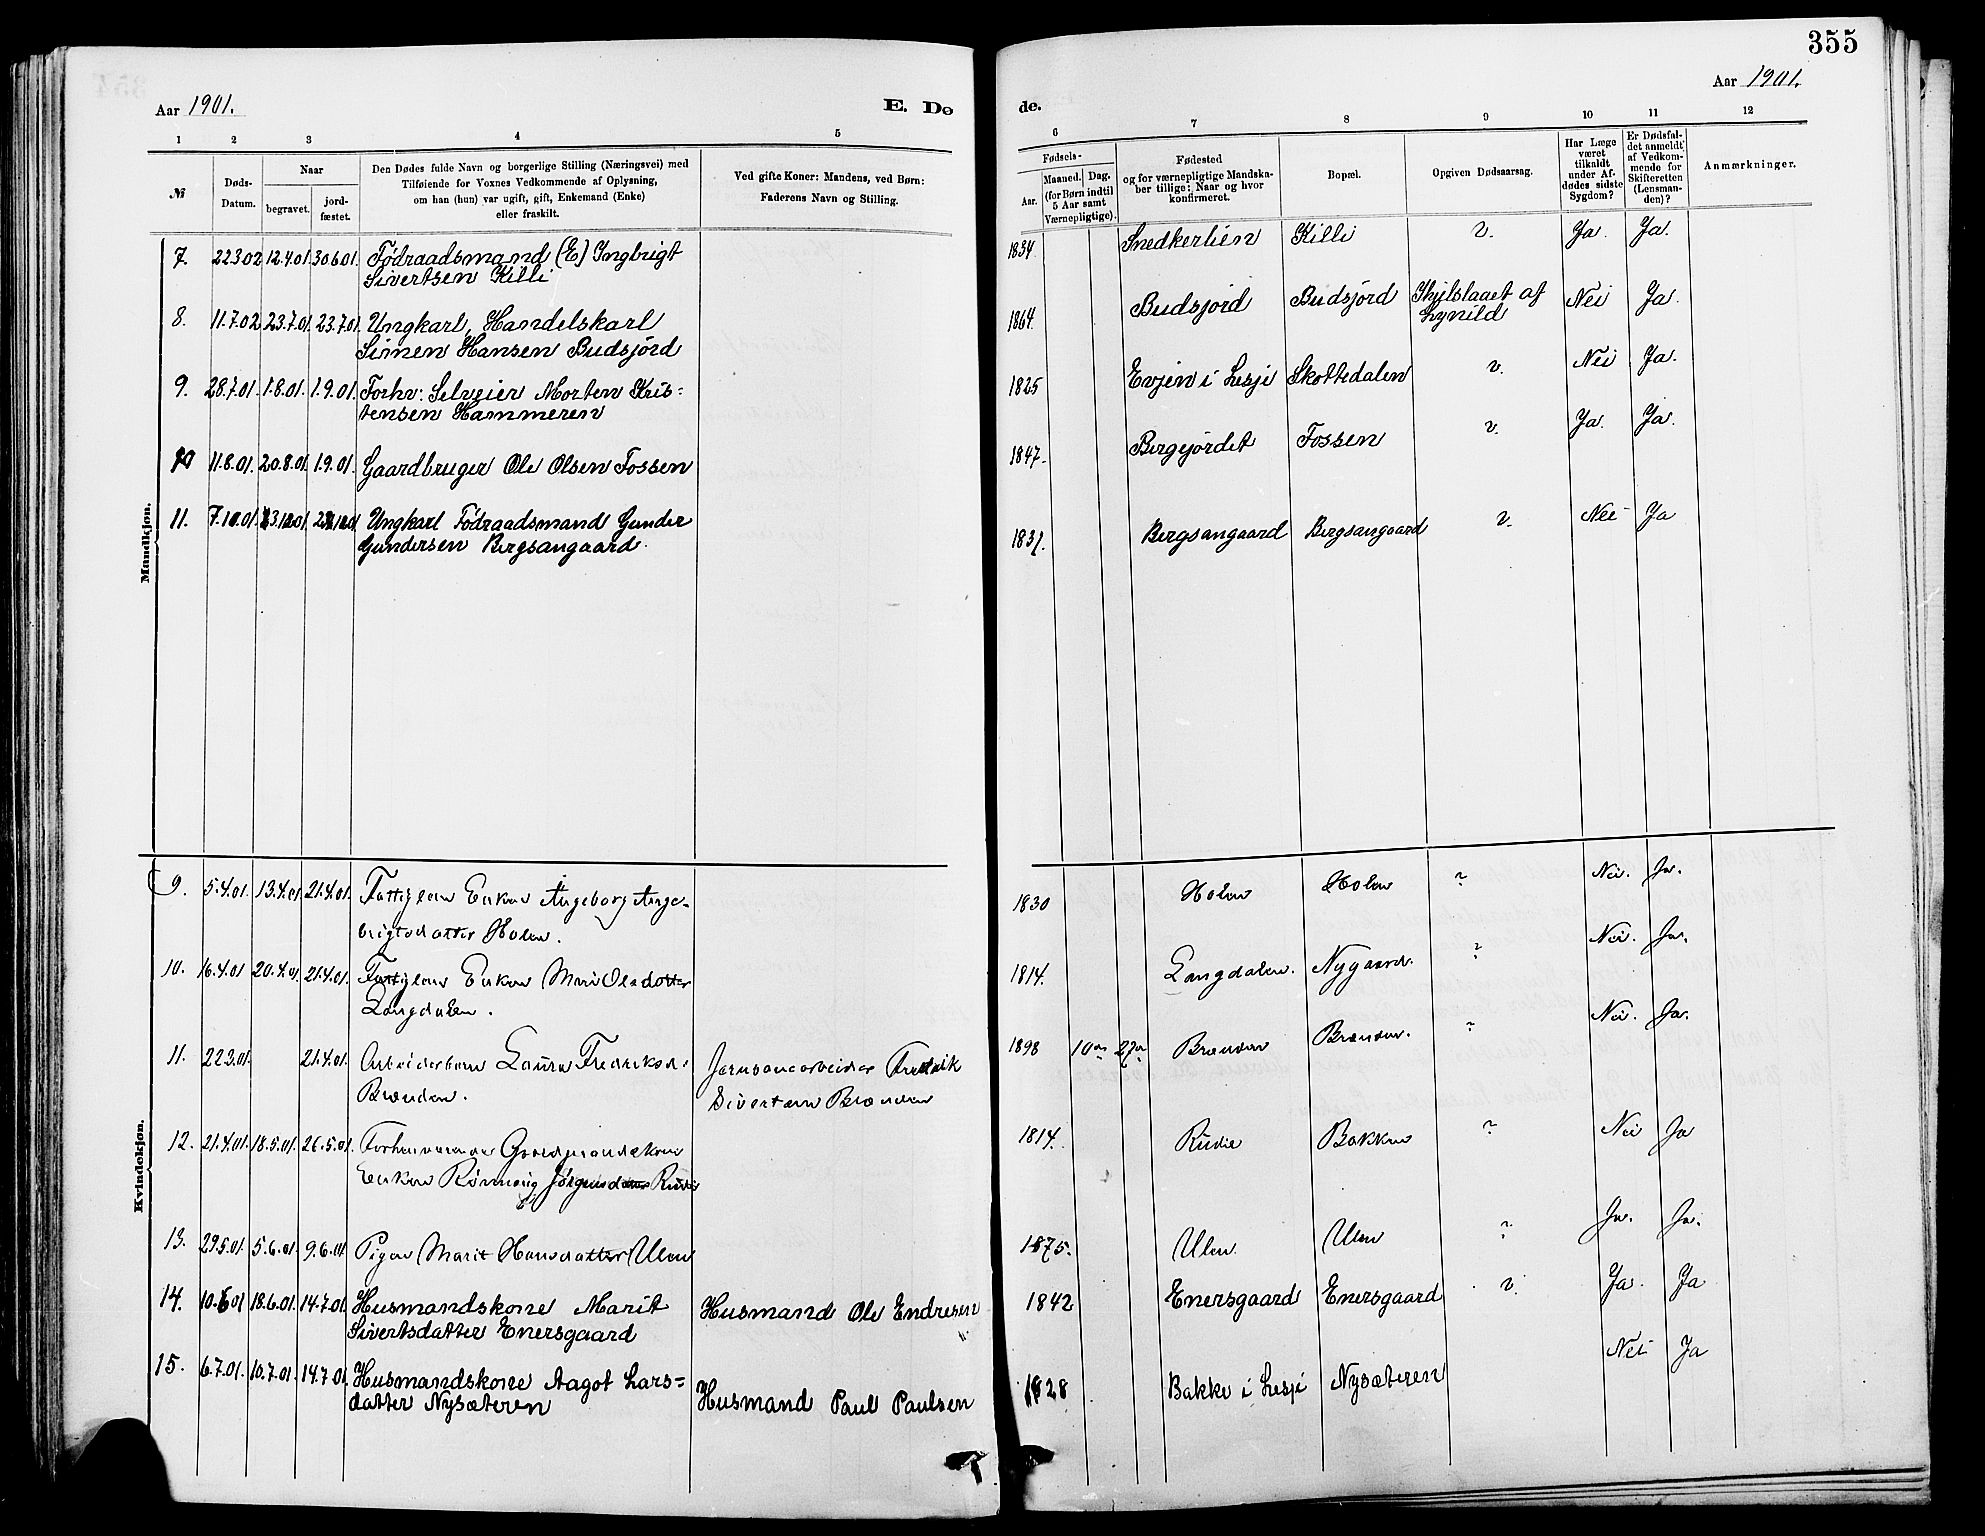 355
Aar 1901.
E. Dø
de.
Aar 1901.
1 2 3 4 5
6 7 8 9 10 11 12
№
Døds-
Datum.
Naar
begravet.
jord-
fæstet.
Den Dødes fulde Navn og borgerlige Stilling (Næringsvei) med
Tilføiende for Voxnes Vedkommende af Oplysning,
om han (hun) var ugift, gift, Enkemand (Enke)
eller fraskilt.
Ved gifte Koner: Mandens, ved Børn:
Faderens Navn og Stilling.
Fødsels-
Aar.
Maaned. Dag.
(for Børn indtil
5 Aar samt
Værnepligtige).
Fødested
og for værnepligtige Mandska-
ber tillige: Naar og hvor
konfirmeret.
Bopæl.
Opgiven Dødsaarsag.
Har Læge
været
tilkaldt
under Af-
dødes sidste
Sygdom?
Er Dødsfal-
det anmeldt
af Vedkom-
mende for
Skifteretten
(Lensman-
den)?
Anmærkninger.
Mandkjøn.
7. 22302 12.4.01 30601. Födraadsmand (E) Ingbrigt
Sivertsen Killi
1834 Snedkerlien Killi v. Ja. Ja.
8. 11.7.02 23.7.01 23.7.01 Ungkarl, Handelskarl
Simen Hansen Budsjörd
1864. Budsjörd Budsjörd Ihjelslaaet af
Lynild
Nei Ja.
9. 28.7.01. 1.8.01. 1.9.01. Forhv: Selveier Morten Kris=
tensen Hammeren
1825 Evjen i Lesje Skottedalen v. Nei Ja.
10 11.8.01. 20.8.01. 1.9.01. Gaardbruger Ole Olsen Fossen
1847. Bergejördet Fossen v. Ja. Ja.
11. 7.10.01. Ungkarl Födraadsmand Gunder
Gundersen Bergsangaard.
1831. Bergsangaard Bergsangaard v. Nei Ja
Kvindekjøn.
9. 5.4.01. 13.4.01. 21.4.01. Enke Ingeborg Inge-
brigtsdatter Holen.
1830 Holen Holen ? Nei. Ja.
10. 16.4.01 20.4.01 21.4.01. Enke Mari Olsdatter
Langdalen.
1814. Langdalen. Nygaard. ? Nei. Ja.
11. 22301. 21.4.01. Arbeiderbarn Laura Fredriksd.
Brænden.
Jernbanearbeider Fredrik
Sivertsen Brænden
1898 10de 27de Brænden Brænden. ? Nei. Ja.
12. 21.4.01. 18.5.01. 26.5.01. Forhenværende Gaardmandskone
Enke Rønnaug Jørgensdatter Rudie
1814. Rudie Bakken ? Nei Ja
13. 29.5.01. 5.6.01. 9.6.01. Pige Marit Hansdatter Ulen
1875. Ulen Ulen ? Ja. Ja.
14. 10.6.01 18.6.01. 14.7.01. Husmandskone Marit
Sivertsdatter Enersgaard
Husmand Ole Endresen
1842 Enersgaard Enersgaard v. Ja. Ja
15. 6.7.01. 10.7.01. 14.7.01. Husmandskone Aagot Lars=
datter Nysæteren
Husmand Paul Paulsen
1828 Bakke i Lesje Nysæteren Nei Ja